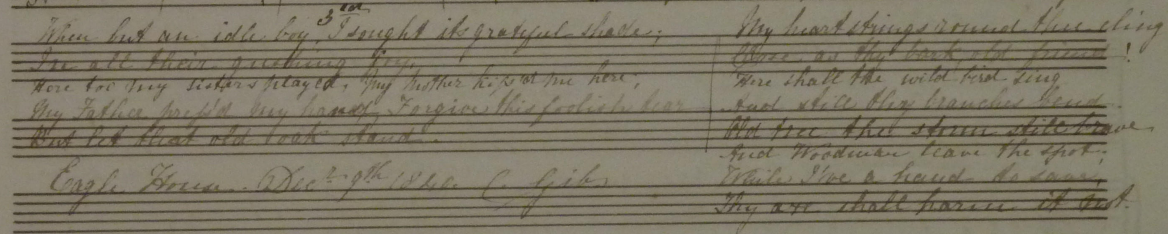 3rd
When but an idle boy, I sought its grateful shade;
In all their gushing joy
Here too my sisters played, My Mother kiss'd me here;
My Father press'd my hand, Forgive this foolish tear
But let that old oak stand.
Eagle House. Decr 9th 1840. C. Gibs
My heart strings round thee cling
Close as thy bark old friend!
Here shall the wild bird sing
And still thy branches bend.
Old tree the storm still brave
And Woodman leave the spot;
While I've a hand to save,
Thy axe shall harm it not.